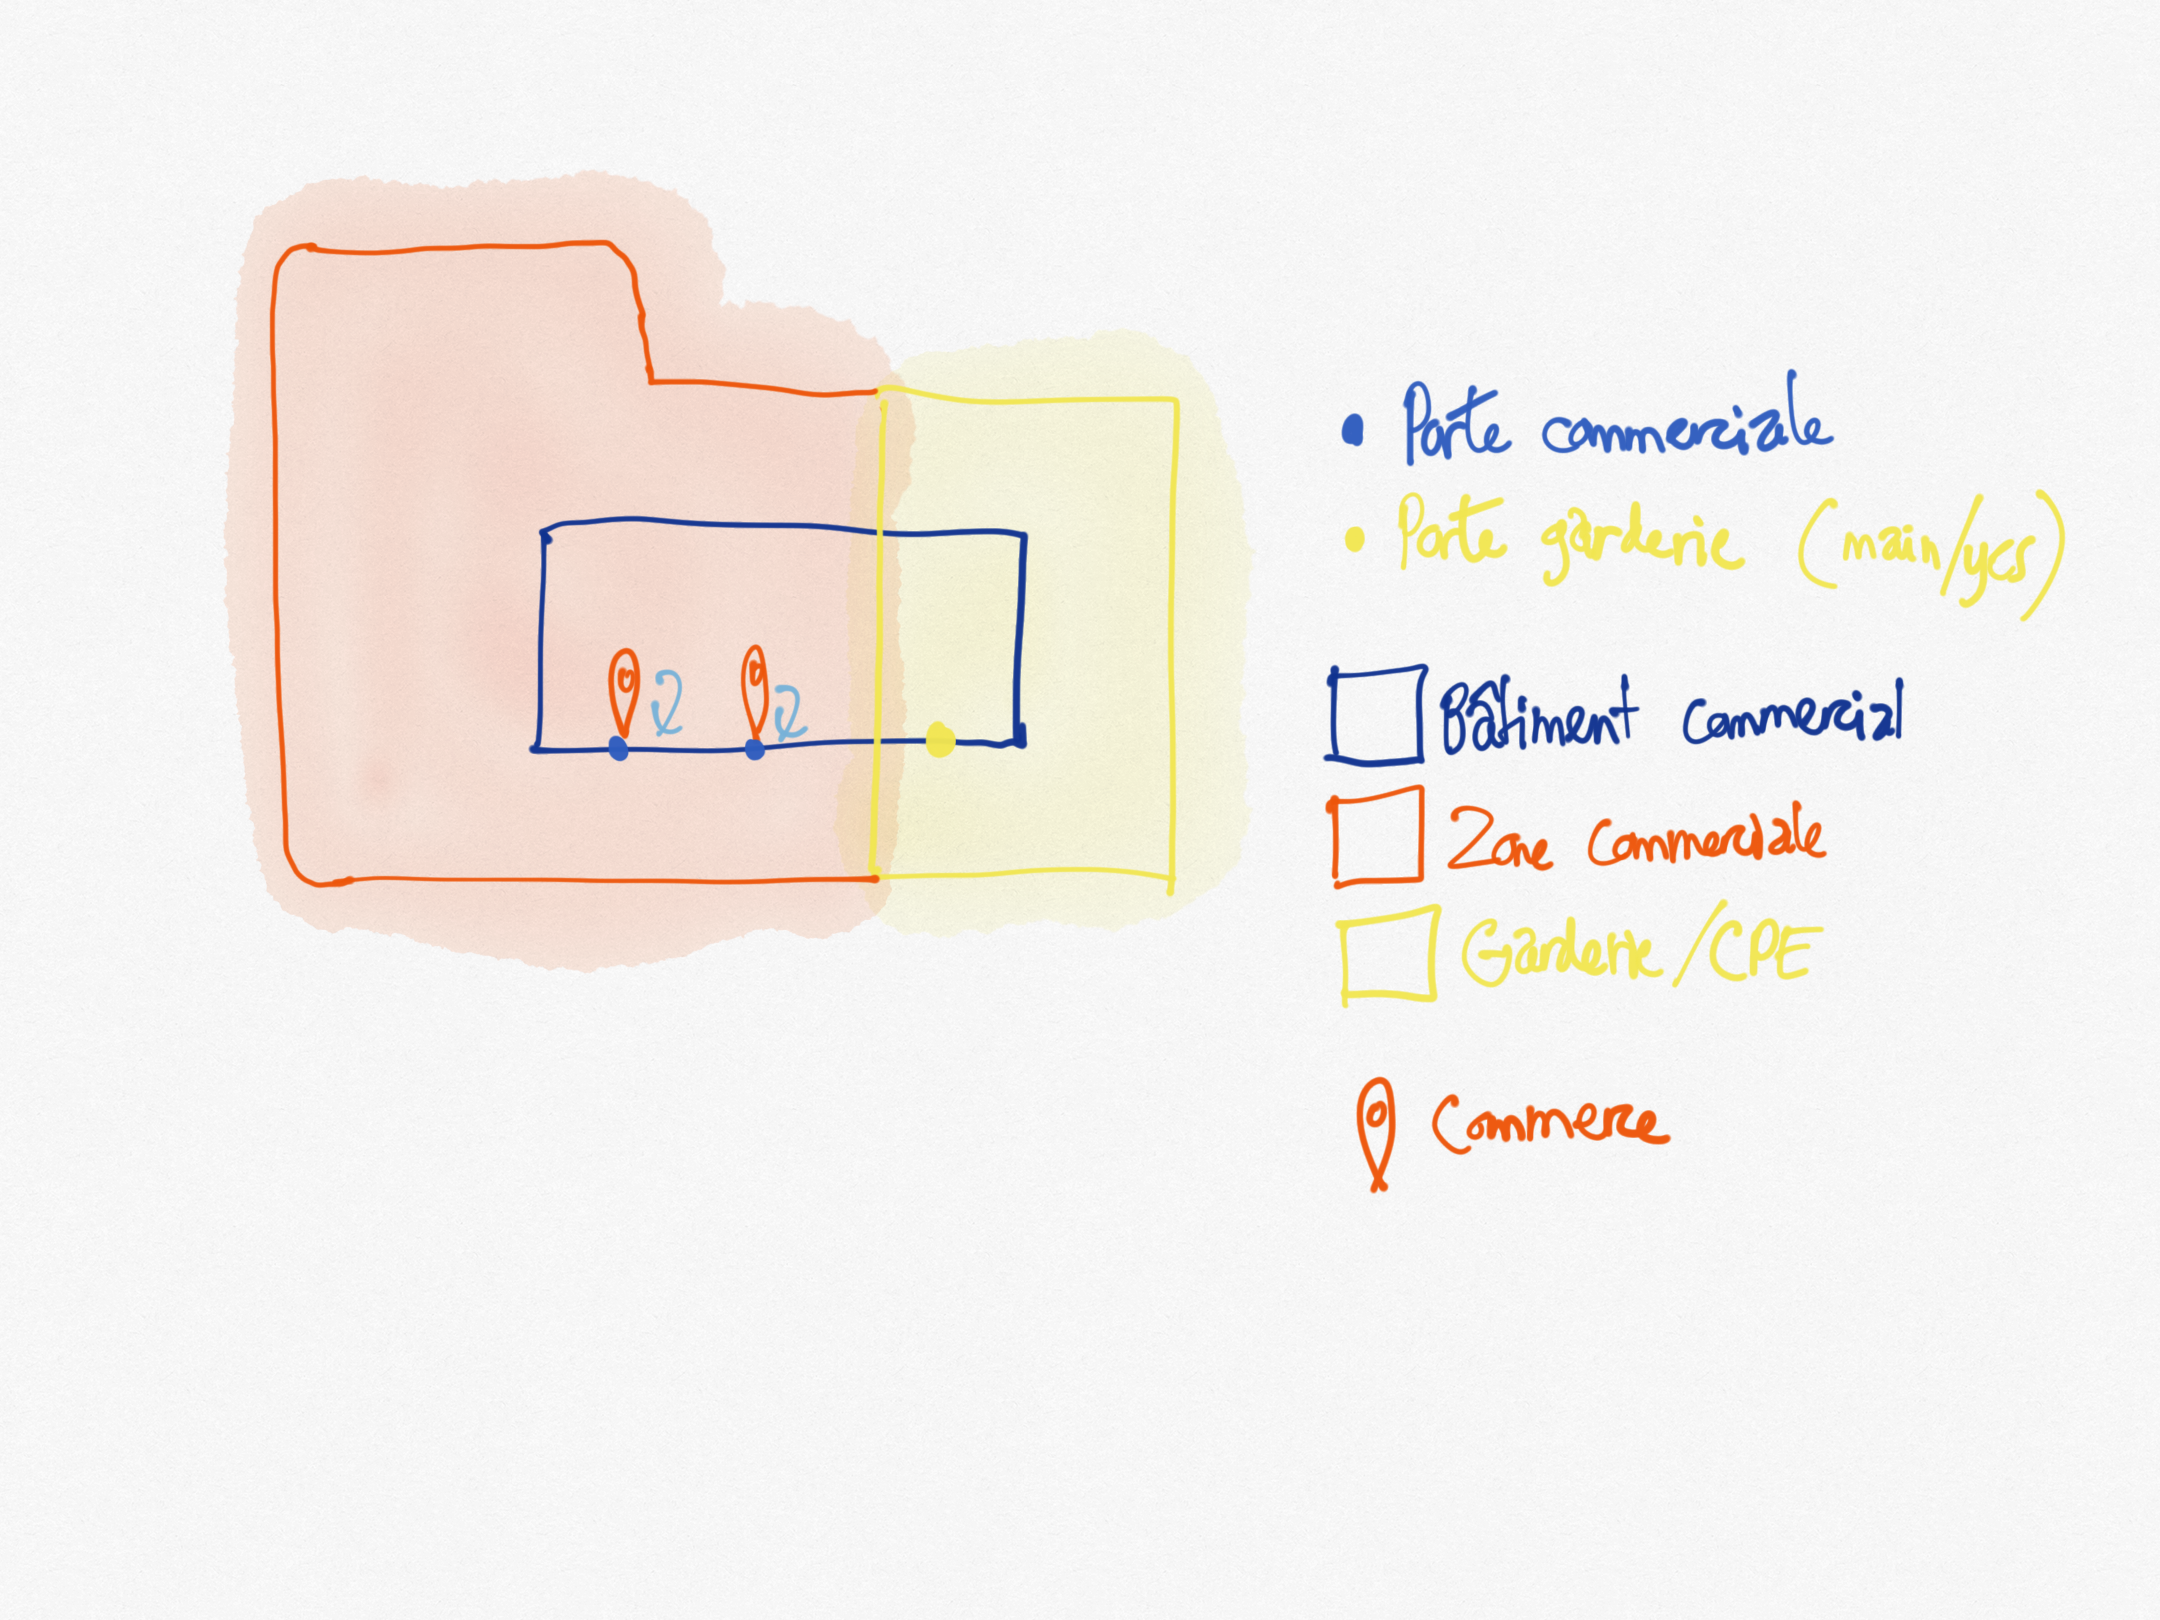 Porte commerciale
Porte garderie (main/yes)
Bâtiment commercial
Zone commerciale
Garderie/CPE
Commerce